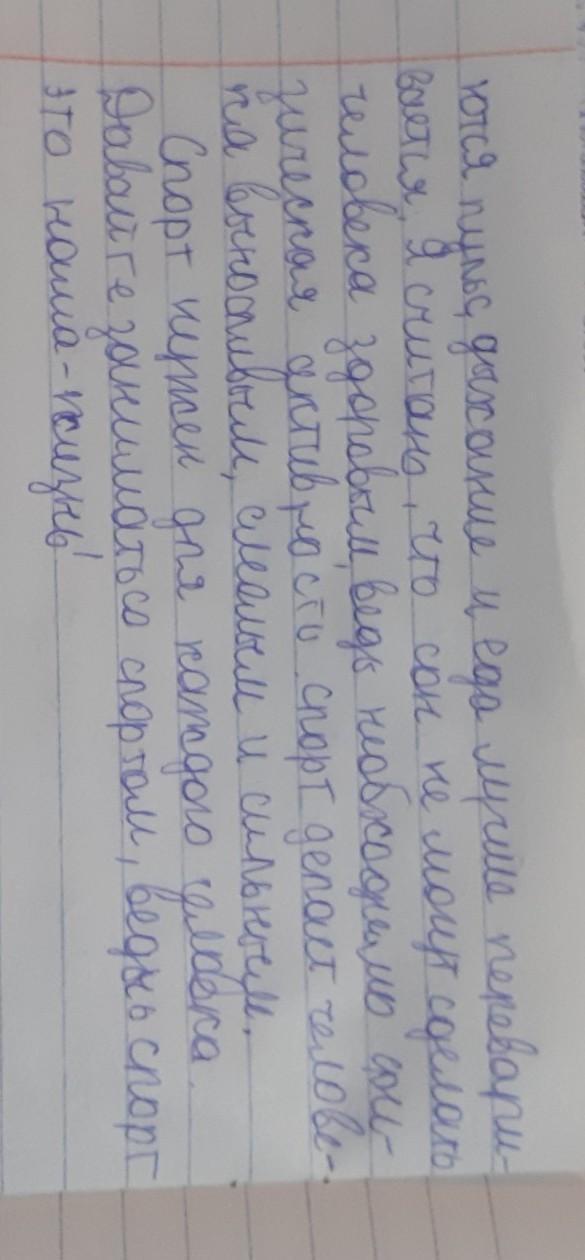 ются пульс, дыхание и еда лучше перевари-
вается. Я считаю, что сон не могут сделать
человека здоровым, ведь необходимо фи-
зическая активность. спорт делает челове-
ка выносливым, смелым и сильным.
Спорт нужен для каждого человека.
Давайте заниматься спортом, ведь спорт
это наша - жизнь!